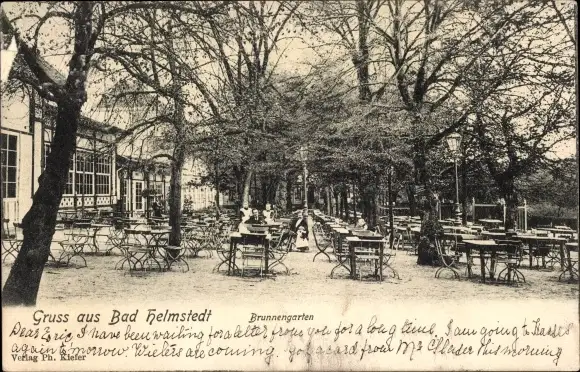 Gruss aus Bad Helmstedt
Brunnengarten
Dear Eric, I have been waiting for a letter from you for a long time. I am going to
again to-morrow. Wielers are coming. got a card from this morning
Verlag Ph. Kiefer